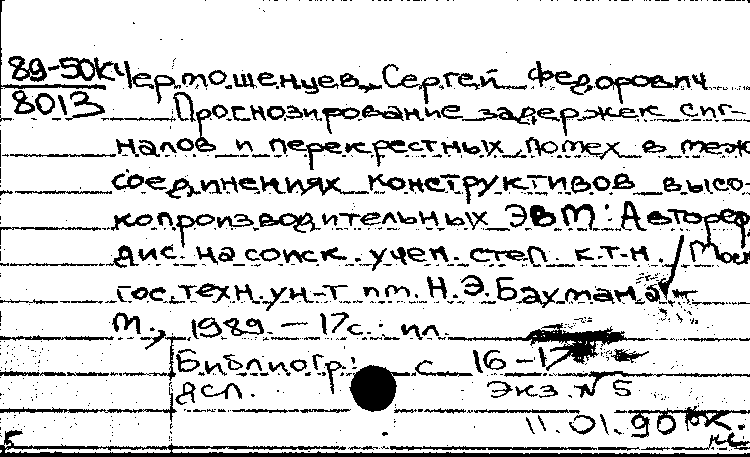 89-50КЧ
8013
Чермошенцев, Сергей Федорович
Прогнозирование задержек сиг-
налов и перекрестных помех в меж
соединениях конструктивов высо-
копроизводительных ЭВМ: Автореф.
дис. на соиск. учен. степ. к.т.н. / Моск
гос. техн. ун-т им. Н.Э. Баумана
М., 1989. - 17с.: ил.
Библиогр: с 16-17
ДСП. Экз. № 5
11.01.90
5